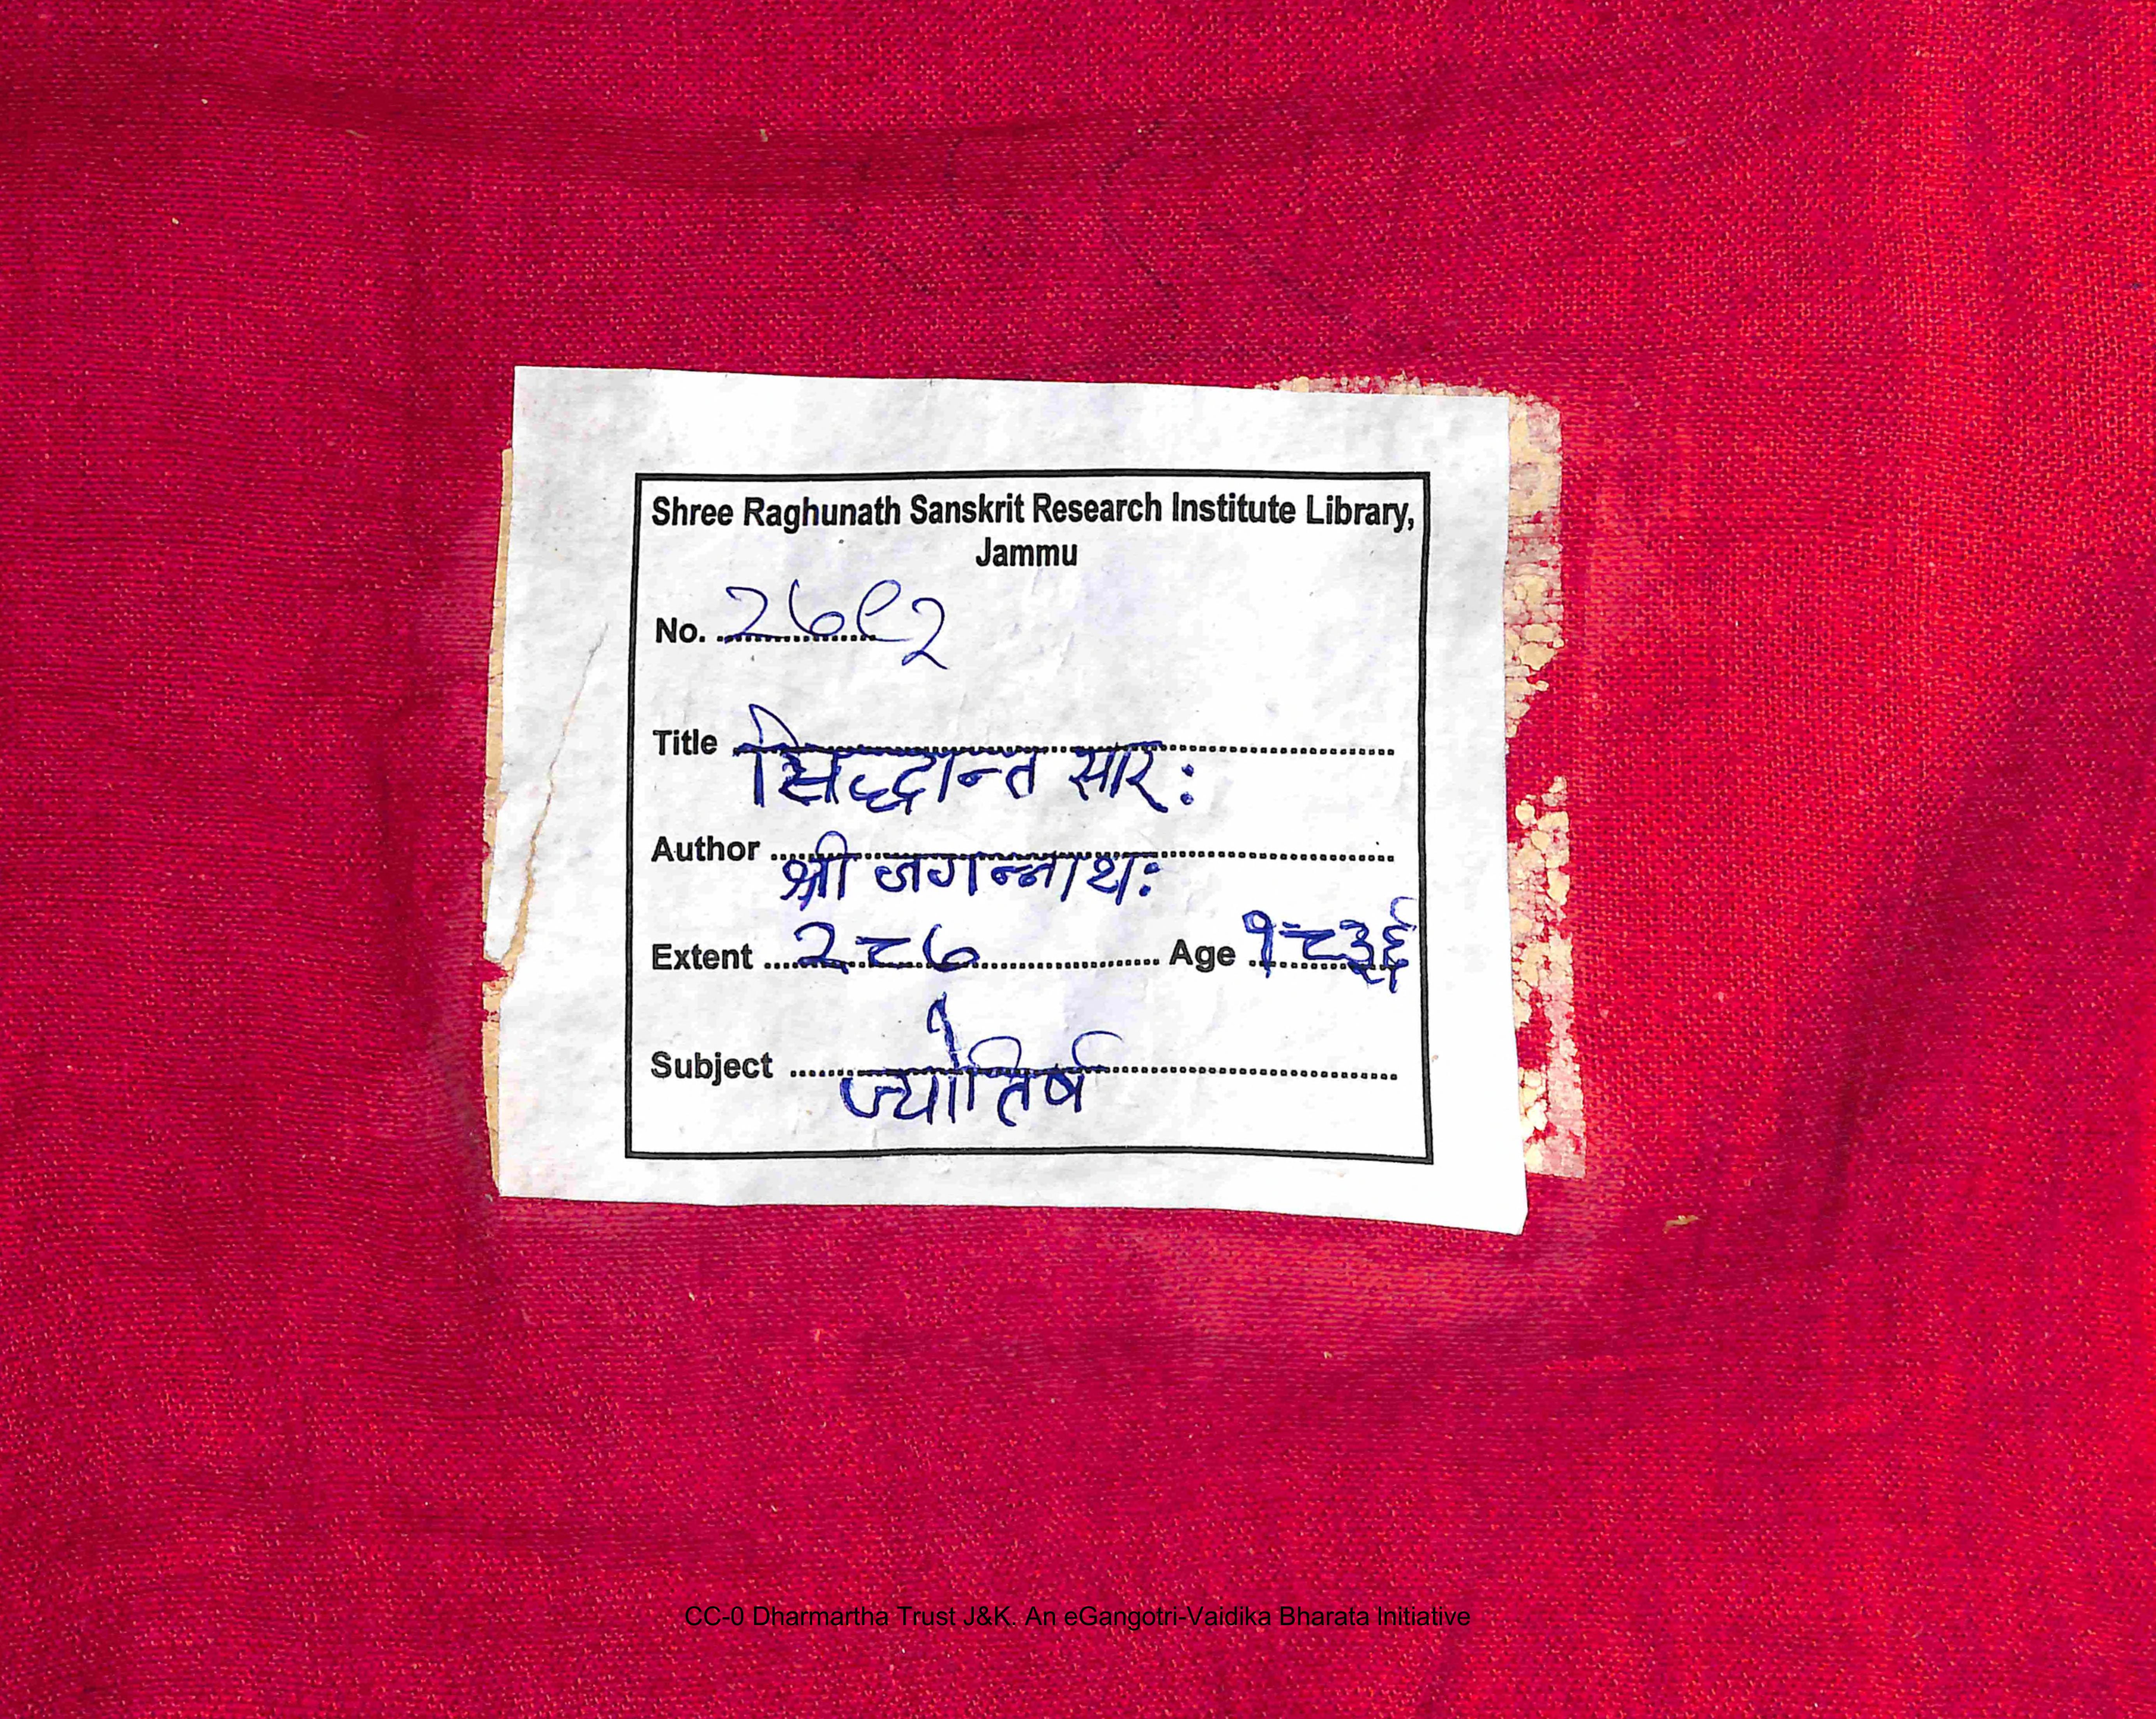 Shree Raghunath Sanskrit Research Institute Library,
Jammu
No. २७९२
Title सिद्धान्त सार:
Author श्री जगन्नाथ:
Extent २८७ Age १८३६
१
Subject ज्योतिर्ष
CC-0 Dharmartha Trust J&K. An eGangotri-Vaidika Bharata Initiative